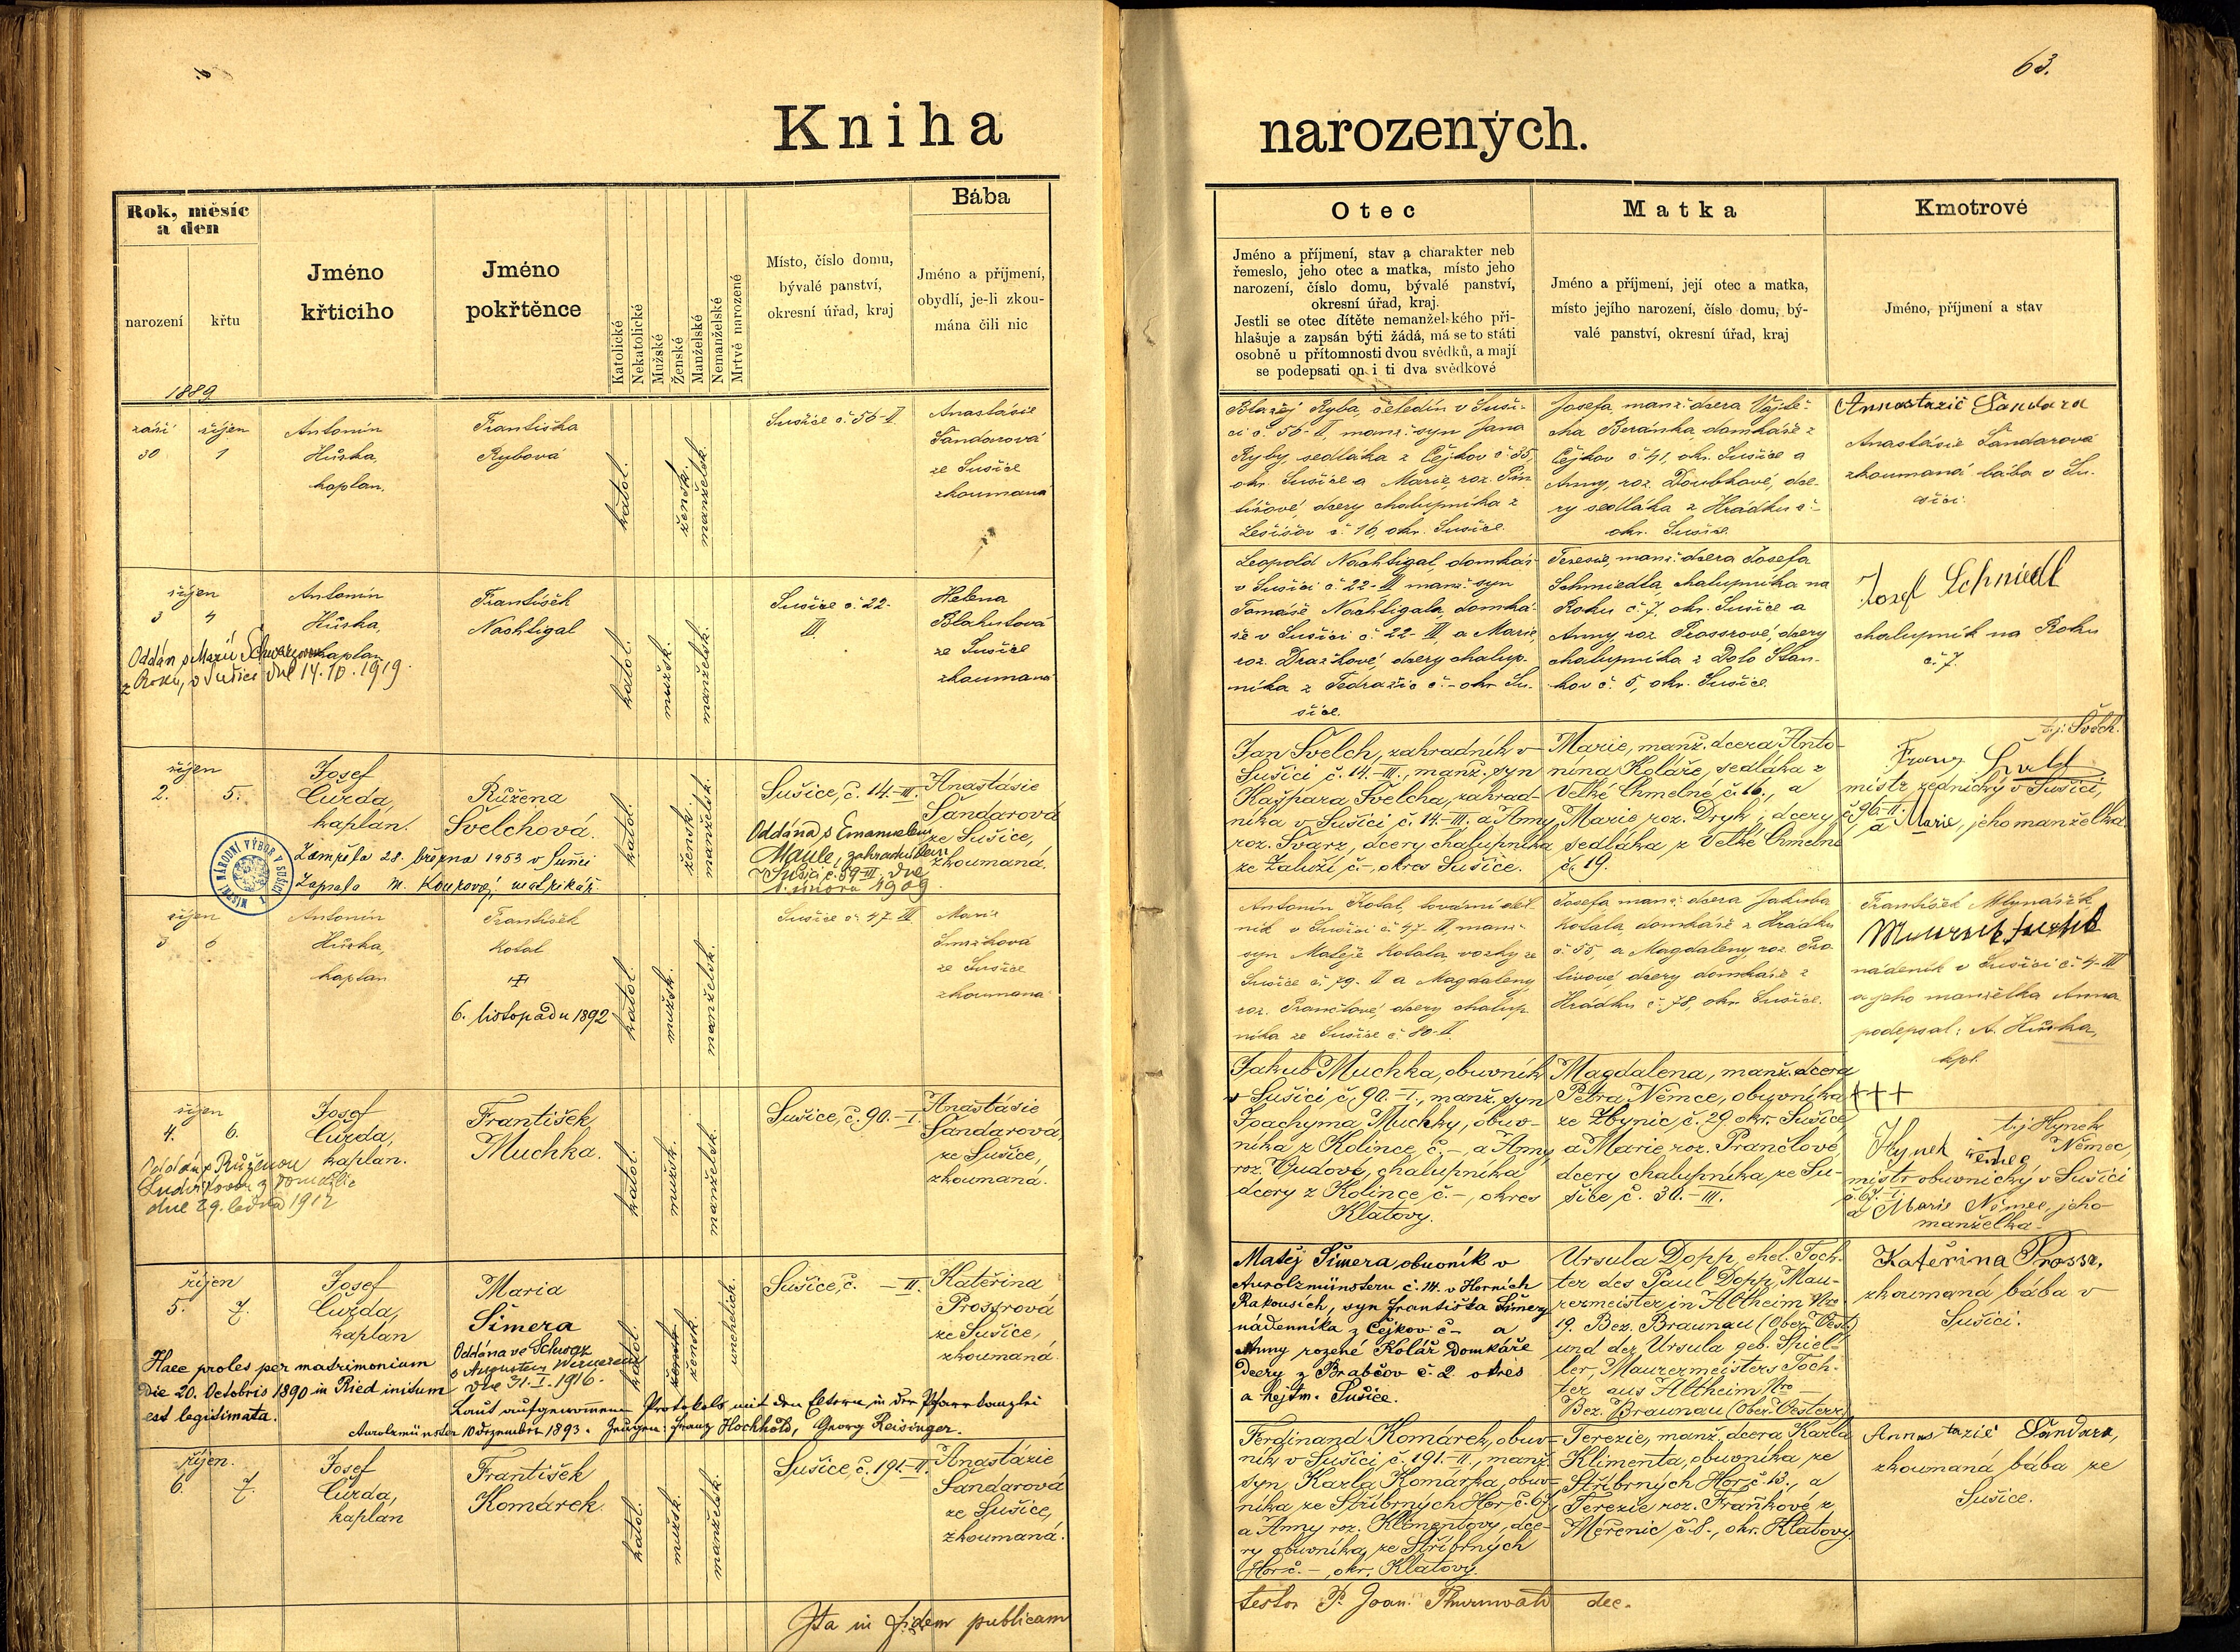 63.
Kniha narozených.
Rok, měsíc
a den
narození
křtu
Jméno
křtícího
Jméno
pokřtěnce
Katolické
Nekatolické
Mužské
Ženské
Manželské
Nemanželské
Mrtvě narozené
Místo, číslo domu,
bývalé panství,
okresní úřad, kraj
Bába
Jméno a příjmení,
obydlí, je-li zkou-
mána čili nic
Otec
Jméno a příjmení, stav a charakter neb
řemeslo, jeho otec a matka, místo jeho
narození, číslo domu, bývalé panství,
okresní úřad, kraj.
Jestli se otec dítěte nemanželského při-
hlašuje a zapsán býti žádá, má se to státi
osobně u přítomnosti dvou svědků, a mají
se podepsati on i ti dva svědkové
Matka
Jméno a příjmení, její otec a matka,
místo jejího narození, číslo domu, bý-
valé panství, okresní úřad, kraj
Kmotrové
Jméno, příjmení a stav
1889
září říjen
30 1
Antonín
Hůrka,
kaplan.
Františka
Rybová
katol.
žensk.
manželsk.
Sušice č. 56-II
Anastásie
Šandarová
ze Sušice
zkoumaná
Blažej Ryba, čeledín v Suši-
ci č. 56-II, manž. syn Jana
Ryby, sedláka z Čejkov č. 35,
okr. Sušice a Marie, roz.
dcery chalupníka z
č. 16, okr. Sušice.
Josefa, manž. dcera Vojtě-
cha Beránka domkáře z
Čejkov č. 41, okr. Sušice a
Anny, roz. Doubkové, dce-
ry sedláka z Hrádku č. -
okr. Sušice.
Annastazié Šandara
Anastásie Šandarová
zkoumaná bába v Su-
šici.
říjen
3 4
Antonín
Hůrka,
kaplan
František
Nachtigal
Oddán s Marií
z Roku, v Sušici dne 14. 10. 1919.
katol.
mužsk.
manželsk.
Sušice č. 22-
III.
Helena
Blahutová
ze Sušice
zkoumaná
Leopold Nachtigal, domkář
v Sušici č. 22-III, manž. syn
Tomáše Nachtigala, domká-
ře v Sušici č. 22-III a Marie,
roz. Dražkové, dcery chalup-
níka z Tedražic č. - okr. Su-
šice.
Teresie, manž. dcera Josefa
Schmiedla, chalupníka na
Roku č. 7, okr. Sušice a
Anny, roz. Prossrové, dcery
chalupníka z Dolo Staň-
kov č. 5, okr. Sušice.
Josef Schmiedl
chalupník na Roku
č. 7.
říjen
2. 5.
Josef
Curda,
kaplán.
Růžena
Švelchová.
Zemřela 28. března 1953 v Sušici
Zapsala M. matrikář.
MÍSTNÍ NÁRODNÍ VÝBOR V SUŠICI
katol.
žensk.
manželsk.
Sušice, č. 14.-III.
Oddána s Emanuelem
Maule, zahradníkem
v Sušici č. 59-III. dne
1. února 1909.
Anastásie
Šandarová
ze Sušice,
zkoumaná.
Jan Švelch, zahradník v
Sušici č. 14.-III., manž. syn
Kašpara Švelcha, zahrad-
níka v Sušici, č. 14.-III. a Anny
roz. Švarz, dcery chalupníka
ze Žaluží, č. -, okres Sušice.
Marie, manž. dcera Anto-
nína Koláře, sedláka z
Velké Chmelné č. 16., a
Marie roz. Dryk, dcery
sedláka z Velké Chmelné
č. 19.
t. j. Švelch.
Franz
mistr zednický v Sušici,
č. 96-II.
a Marie, jeho manželka.
říjen
5 6
Antonín
Hůrka,
kaplan
František
Kotal
6. listopadu 1892
katol.
mužsk.
manželsk.
Sušice č. 47. III.
Marie
Smržková
ze Sušice
zkoumaná
Antonín Kotal, tovární děl-
ník v Sušici č. 47- III, manž.
syn Matěje Kotala, ze
Sušice č. 79. II a Magdaleny,
roz. Prančlové, dcery chalup-
níka ze Sušice č. 80-II.
Josefa manž. dcera Jakuba
Kotala, domkáře z Hrádku
č. 55, a Magdaleny, roz.
dcery domkáře z
Hrádku č. 78, okr. Sušice.
František Mlynařík
nádeník v Sušici č. 4-III
a jeho manželka Anna
podepsal: A. Hůrka,
kpl.
+++
říjen
4. 6.
Josef
Curda,
kaplan.
František
Muchka.
Oddán s Růženou
z
dne 29. ledna 1912
katol.
mužsk.
manželsk.
Sušice, č. 90.-I.
Anastásie
Šandarová,
ze Sušice,
zkoumaná.
Jakub Muchka, obuvník
v Sušici, č. 90.-I., manž. syn
Joachyma Muchky, obuv-
níka z Kolince, č. -, a Anny
roz. Vudové, chalupníka
dcery z Kolince č. -, okres
Klatovy.
Magdalena, manž. dcera
Petra Němce, obuvníka
ze Zbynic, č. 29. okr. Sušice,
a Marie, roz. Prančlové,
dcery chalupníka, ze Su-
šice, č. 30.-III.
t. j. Hynek
Němec,
Hynek
mistr obuvnický v Sušici
č. 67.-I.
a Marie Němec, jeho
manželka.
říjen
5. 7.
Josef
Curda,
kaplan
Maria
Šimera
Oddána ve Schwaz
s Augustem Wernerem
dne 31. I. 1916.
Haec proles per matrimonium
die 20. Octobris 1890 in Ried initum
est legitimata.
Laut aufgenommenen Protokols mit den Eltern in der Pfarrkanzlei
Aurolzmünster 10 dezember 1893. Zeugen: Franz Hochhold, Georg Reisinger.
katol.
žensk.
žensk.
unehelich.
Sušice, č. -II.
Kateřina
Prossrová
ze Sušice,
zkoumaná.
Matěj Šimera, obuvník v
Aurolzmünsteru č. 14. v Horních
Rakousích, syn Františka Šimery
nádenníka z Čejkov č- a
Anny rozené Kolář domkáře
dcery z Brabčov č. 2 okres
a hejtm. Sušice.
Ursula Dopp, ehel. Toch-
ter des Paul Dopp, Mau-
rermeister in Altheim Nro
19. Bez. Braunau (Ober-Oest.)
und der Ursula geb. Spiel-
ler, Maurermeisters Toch-
ter aus Altheim Nro -
Bez. Braunau (Ober-Oesterr.)
Kateřina Prossr,
zkoumaná bába v
Sušici.
říjen.
6. 7.
Josef
Curda,
kaplán
František
Komárek
katol.
mužsk.
manželsk.
Sušice, č. 191.-II.
Anastázie
Šandarová
ze Sušice,
zkoumaná.
Ferdinand Komárek, obuv-
ník v Sušici, č. 191.-II., manž.
syn Karla Komárka, obuv-
níka, ze Stříbrných Hor, č. 67,
a Anny roz. Klimentovy, dce-
ry obuvníka, ze Stříbrných
Hor č. -, okr. Klatovy.
Terezie, manž. dcera Karla
Klimenta, obuvníka, ze
Stříbrných Hor, č. 13., a
Terezie roz. Fraňkové z
Měřenic, č. 8., okr. Klatovy.
Annastazié Šandara,
zkoumaná bába ze
Sušice.
Ita in fidem publicam
testor P. Joan. Thurnwald dec.